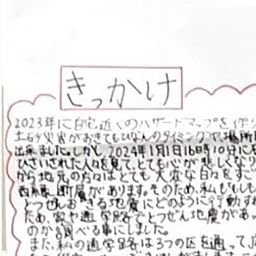 きっかけ
2023年に自宅近くのハザードマップを作り
土砂災害がおきてもひなんのタイミングや場所
出来ました。しかし、2024年1月1日16時10分に
ひさいされた人々を見て、とても心が悲しくなり
から地元の方々はとても大変な日々をすご
断層があります。そのため、私ももし
とつぜんおきる地震にどのように行動す
ため、家や通学路でとつぜん地震があっ
のか調べる事にしました。
また、私の通学路は3つの区を通って、